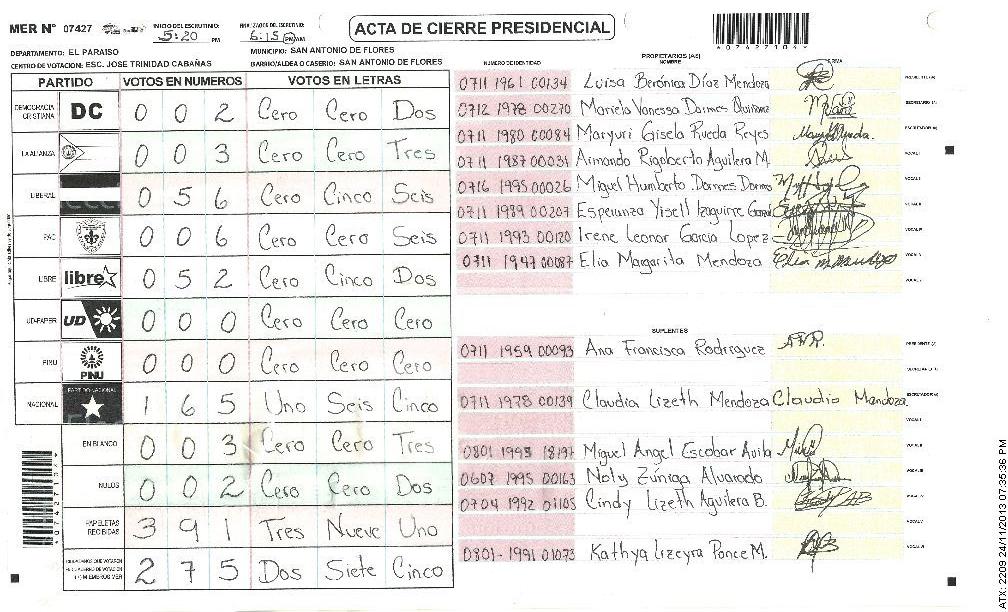 MER N° 07427 INICIO DEL ESCRUTINIO: 5:20 PM FINALIZADO DEL ESCRUTINIO: 6:15 PM AM ACTA DE CIERRE PRESIDENCIAL
DEPARTAMENTO: EL PARAISO MUNICIPIO: SAN ANTONIO DE FLORES
CENTRO DE VOTACION: ESC. JOSE TRINIDAD CABAÑAS BARRIO/ALDEA O CASERIO: SAN ANTONIO DE FLORES
PARTIDO VOTOS EN NUMEROS VOTOS EN LETRAS
DEMOCRACIA CRISTIANA DC 0 0 2 Cero Cero Dos
LA ALIANZA 0 0 3 Cero Cero Tres
LIBERAL 0 5 6 Cero Cinco Seis
PAC 0 0 6 Cero Cero Seis
LIBRE libre 0 5 2 Cero Cinco Dos
UD-FAPER UD 0 0 0 Cero Cero Cero
PINU PINU 0 0 0 Cero Cero Cero
NACIONAL PARTIDO NACIONAL 1 6 5 Uno Seis Cinco
EN BLANCO 0 0 3 Cero Cero Tres
NULOS 0 0 2 Cero Cero Dos
PAPELETAS RECIBIDAS 3 9 1 Tres Nueve Uno
CIUDADANOS QUE VOTARON 2 7 5 Dos Siete Cinco
(+) MIEMBROS MER
PROPIETARIOS (AS)
NUMERO DE IDENTIDAD NOMBRE FIRMA
0711 1961 00134 Luisa Berónica Díaz Mendoza PRESIDENTE (A)
0712 1978 00270 Mariela Vanessa Darmes Quiñonez SECRETARIO (A)
0711 1980 00084 Maryuri Gisela Rueda Reyes ESCRUTADOR (A)
0711 1987 00031 Armando Rigoberto Aguilera M. VOCAL I
0716 1995 00026 Miguel Humberto Darmes Darmo
0711 1989 00207 Esperanza Yisell Izaguirre
0711 1993 00120 Irene Leonor García Lopez
0711 1947 00087 Elia Margarita Mendoza
SUPLENTES
0711 1959 00093 Ana Francisca Rodriguez PRESIDENTE (A)
SECRETARIO (A)
0711 1978 00139 Claudia Lizeth Mendoza Claudia Mendoza. ESCRUTADOR (A)
0801 1995 18197 Miguel Angel Escobar Avila
0607 1995 00163 Noly Zúniga Alvarado
0704 1992 01105 Cindy Lizeth Aguilera B.
0801-1991 01073 Kathya Lizeyra Ponce M.
ATX: 2209 24/11/2013 07:35:36 PM